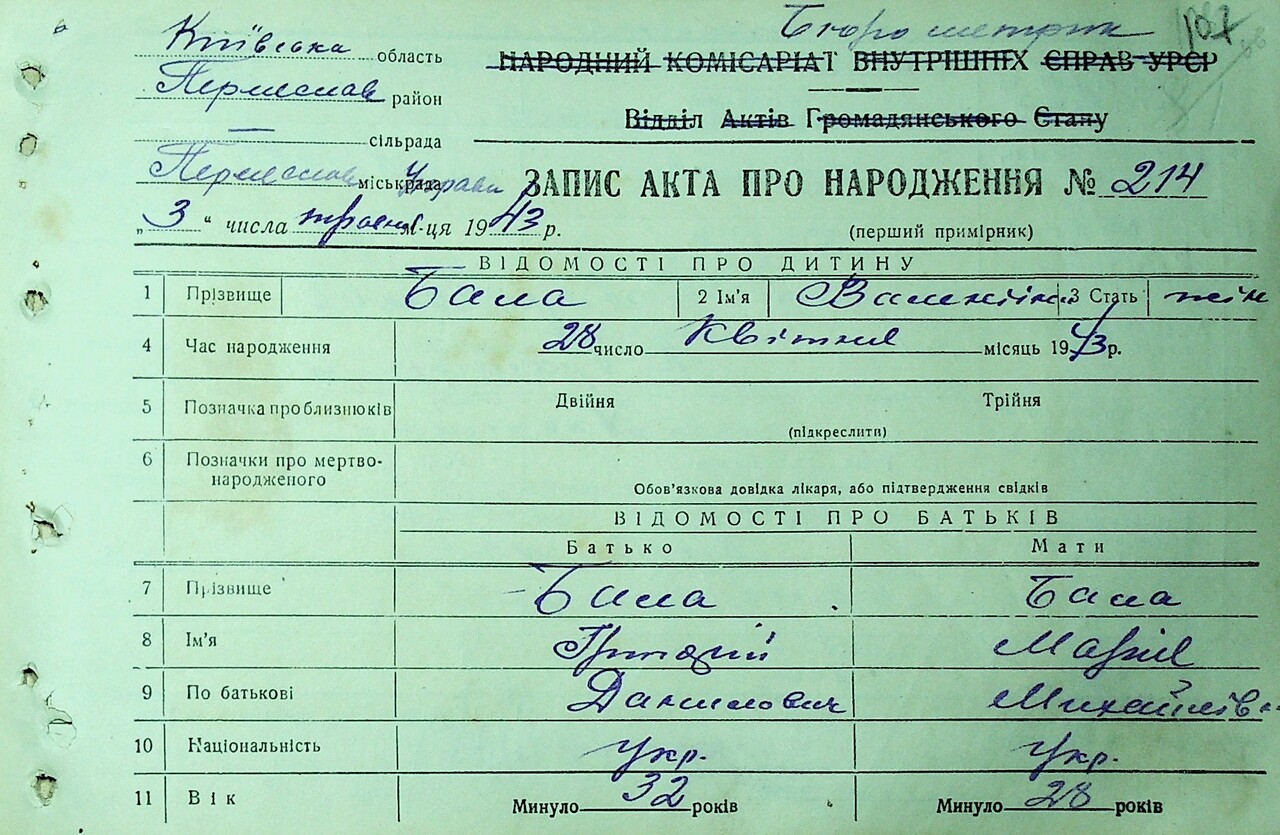 Київська область
Бюро метрик
1087
НАРОДНИЙ КОМІСАРІАТ ВНУТРІШНІХ СПРАВ УРСР
Переяслав район
Відділ Актів Громадянського Стану
— сільрада
Переяслав міськрада Управа
ЗАПИС АКТА ПРО НАРОДЖЕННЯ № 214
„ 3 “ числа травня м-ця 1943 р.
(перший примірник)
ВІДОМОСТІ ПРО ДИТИНУ
1 Прізвище Бала 2 Ім'я Валентіна 3 Стать жін
4 Час народження 28 число Квітня місяць 1943 р.
5 Позначка про близнюків Двійня Трійня
(підкреслити)
6 Позначки про мертво-
народженого
Обов'язкова довідка лікаря, або підтвердження свідків
ВІДОМОСТІ ПРО БАТЬКІВ
Батько Мати
7 Прізвище Бала Бала
8 Ім'я Григорій Марія
9 По батькові Данилович Михайлів
10 Національність укр. укр.
11 Вік Минуло 32 років Минуло 28 років